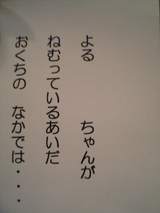 よる　　　ちゃんが
ねむっているあいだ
おくちの　なかでは・・・